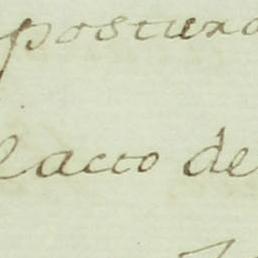 postura
lacto de